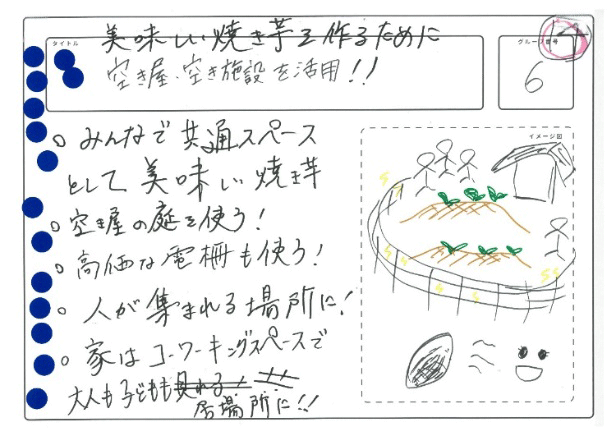 タイトル
美味しい焼き芋を作るために
空き屋、空き施設を活用!!
グループ番号
6
イメージ図
○ みんなで共通スペース
として美味しい焼き芋
○ 空き屋の庭を使う!
○ 高価な電柵も使う!
○ 人が集まれる場所に!
○ 家はコワーキングスペースで
大人も子どもも
居場所に!!